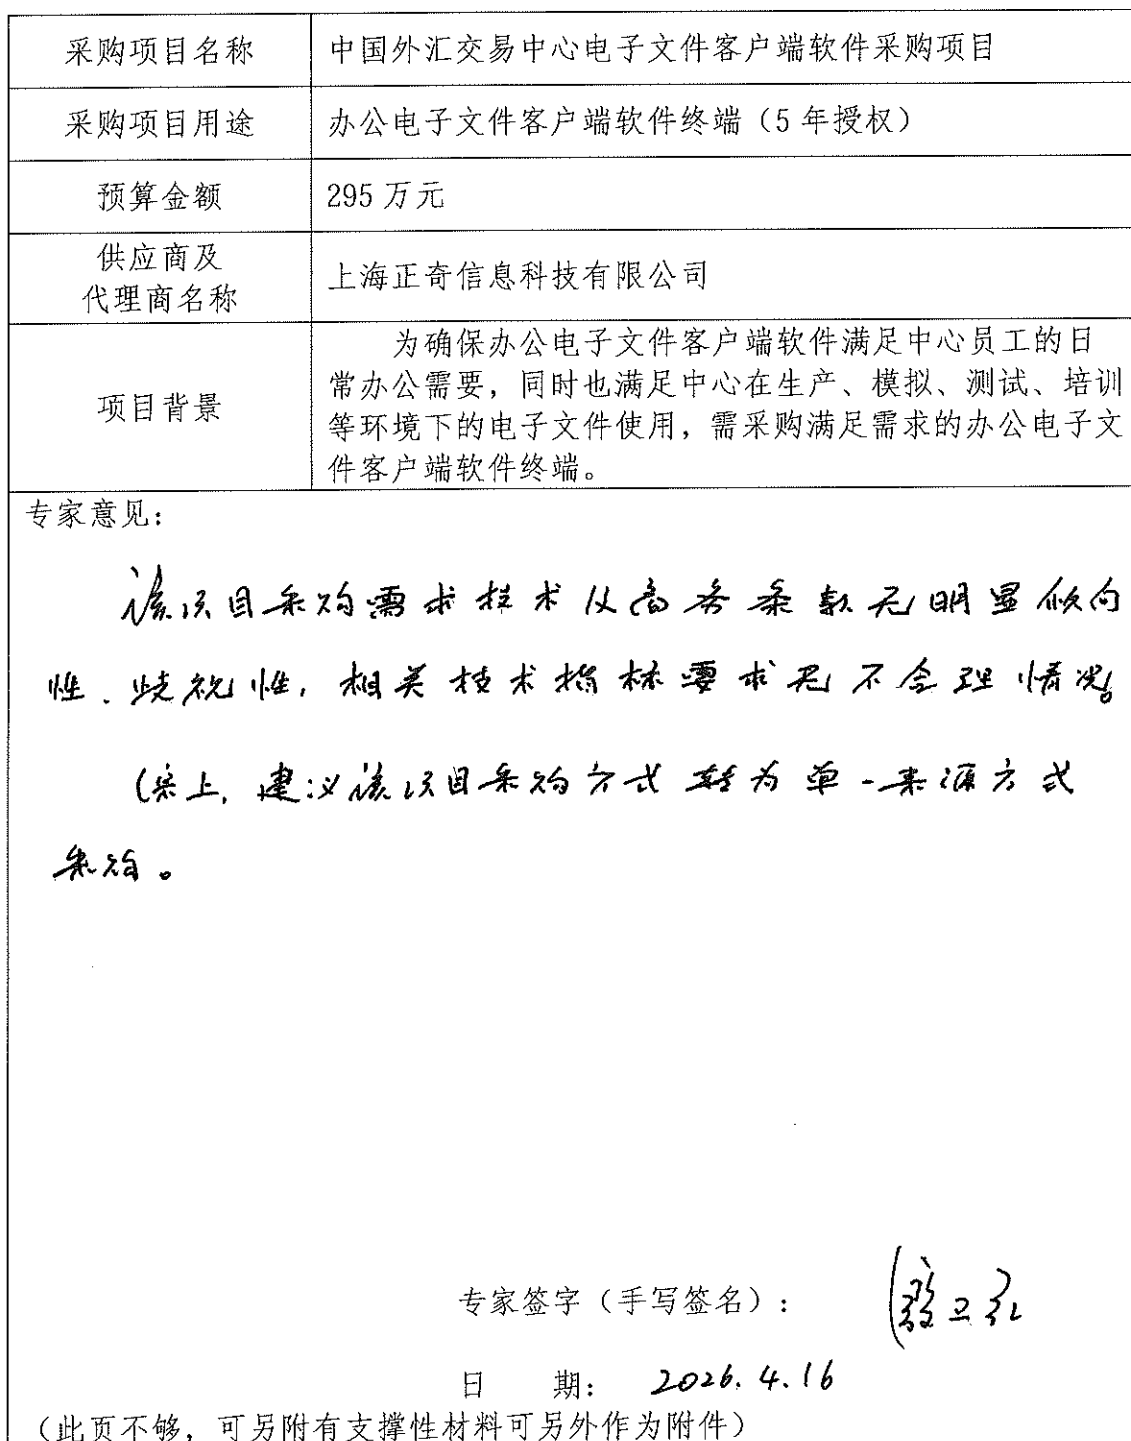 采购项目名称 中国外汇交易中心电子文件客户端软件采购项目
采购项目用途 办公电子文件客户端软件终端（5年授权）
预算金额 295万元
供应商及
代理商名称 上海正奇信息科技有限公司
项目背景 为确保办公电子文件客户端软件满足中心员工的日
常办公需要，同时也满足中心在生产、模拟、测试、培训
等环境下的电子文件使用，需采购满足需求的办公电子文
件客户端软件终端。
专家意见：
该项目采购需求技术及商务条款无明显倾向
性、歧视性，相关技术指标要求无不合理情况。
综上，建议该项目采购方式转为单一来源方式
采购。
专家签字（手写签名）：
日 期： 2026.4.16
（此页不够，可另附有支撑性材料可另外作为附件）